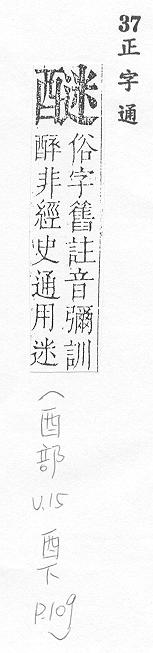 37正字通
醚
俗字舊註音彌訓
醉非經史通用迷
(酉部
V.15
酉下
P.109